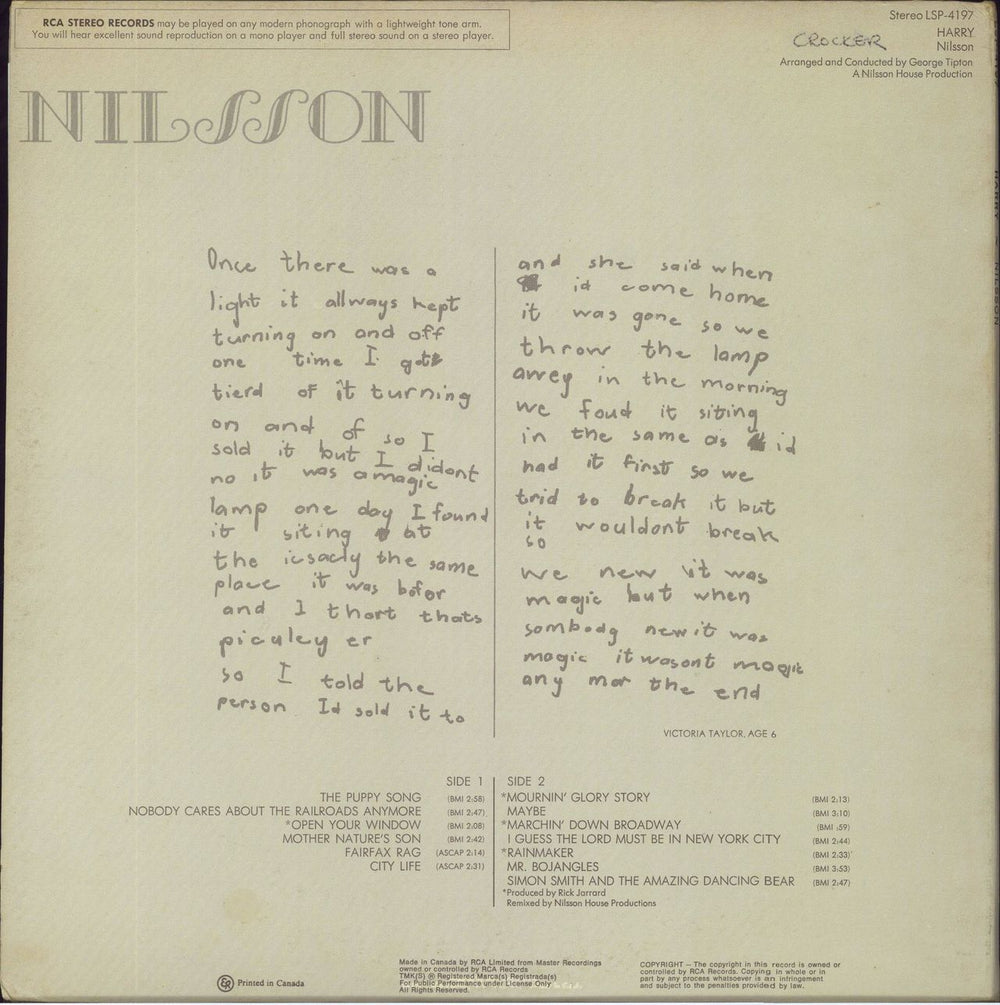 RCA STEREO RECORDS may be played on any modern phonograph with a lightweight tone arm.
You will hear excellent sound reproduction on a mono player and full stereo sound on a stereo player.
Stereo LSP-4197
CROCKER
HARRY
Nilsson
Arranged and Conducted by George Tipton
A Nilsson House Production
NILSSON
Once there was a
light it allways kept
turning on and off
one time I got
tierd of it turning
on and of so I
sold it but I didont
no it was a magic
lamp one day I found
it siting at
the icsacly the same
place it was bofor
and I thort thats
piculey er
so I told the
person Id sold it to
and she said when
id come home
it was gone so we
throw the lamp
awey in the morning
we foud it siting
in the same as id
had it first so we
trid to break it but
it wouldont break
so
we new it was
magic but when
sombody new it was
magic it wasont magic
any mor the end
VICTORIA TAYLOR, AGE 6
SIDE 1
THE PUPPY SONG (BMI 2:58)
NOBODY CARES ABOUT THE RAILROADS ANYMORE (BMI 2:47)
*OPEN YOUR WINDOW (BMI 2:08)
MOTHER NATURE'S SON (BMI 2:42)
FAIRFAX RAG (ASCAP 2:14)
CITY LIFE (ASCAP 2:31)
SIDE 2
*MOURNIN' GLORY STORY (BMI 2:13)
MAYBE (BMI 3:10)
*MARCHIN' DOWN BROADWAY (BMI :59)
I GUESS THE LORD MUST BE IN NEW YORK CITY (BMI 2:44)
*RAINMAKER (BMI 2:33)
MR. BOJANGLES (BMI 3:53)
SIMON SMITH AND THE AMAZING DANCING BEAR (BMI 2:47)
*Produced by Rick Jarrard
Remixed by Nilsson House Productions
Printed in Canada
Made in Canada by RCA Limited from Master Recordings
owned or controlled by RCA Records
TMK(S) ® Registered Marca(s) Registrada(s)
For Public Performance under License Only
All Rights Reserved.
COPYRIGHT — The copyright in this record is owned or
controlled by RCA Records. Copying in whole or in
part by any process whatsoever is an infringement
and subject to the penalties provided by law.